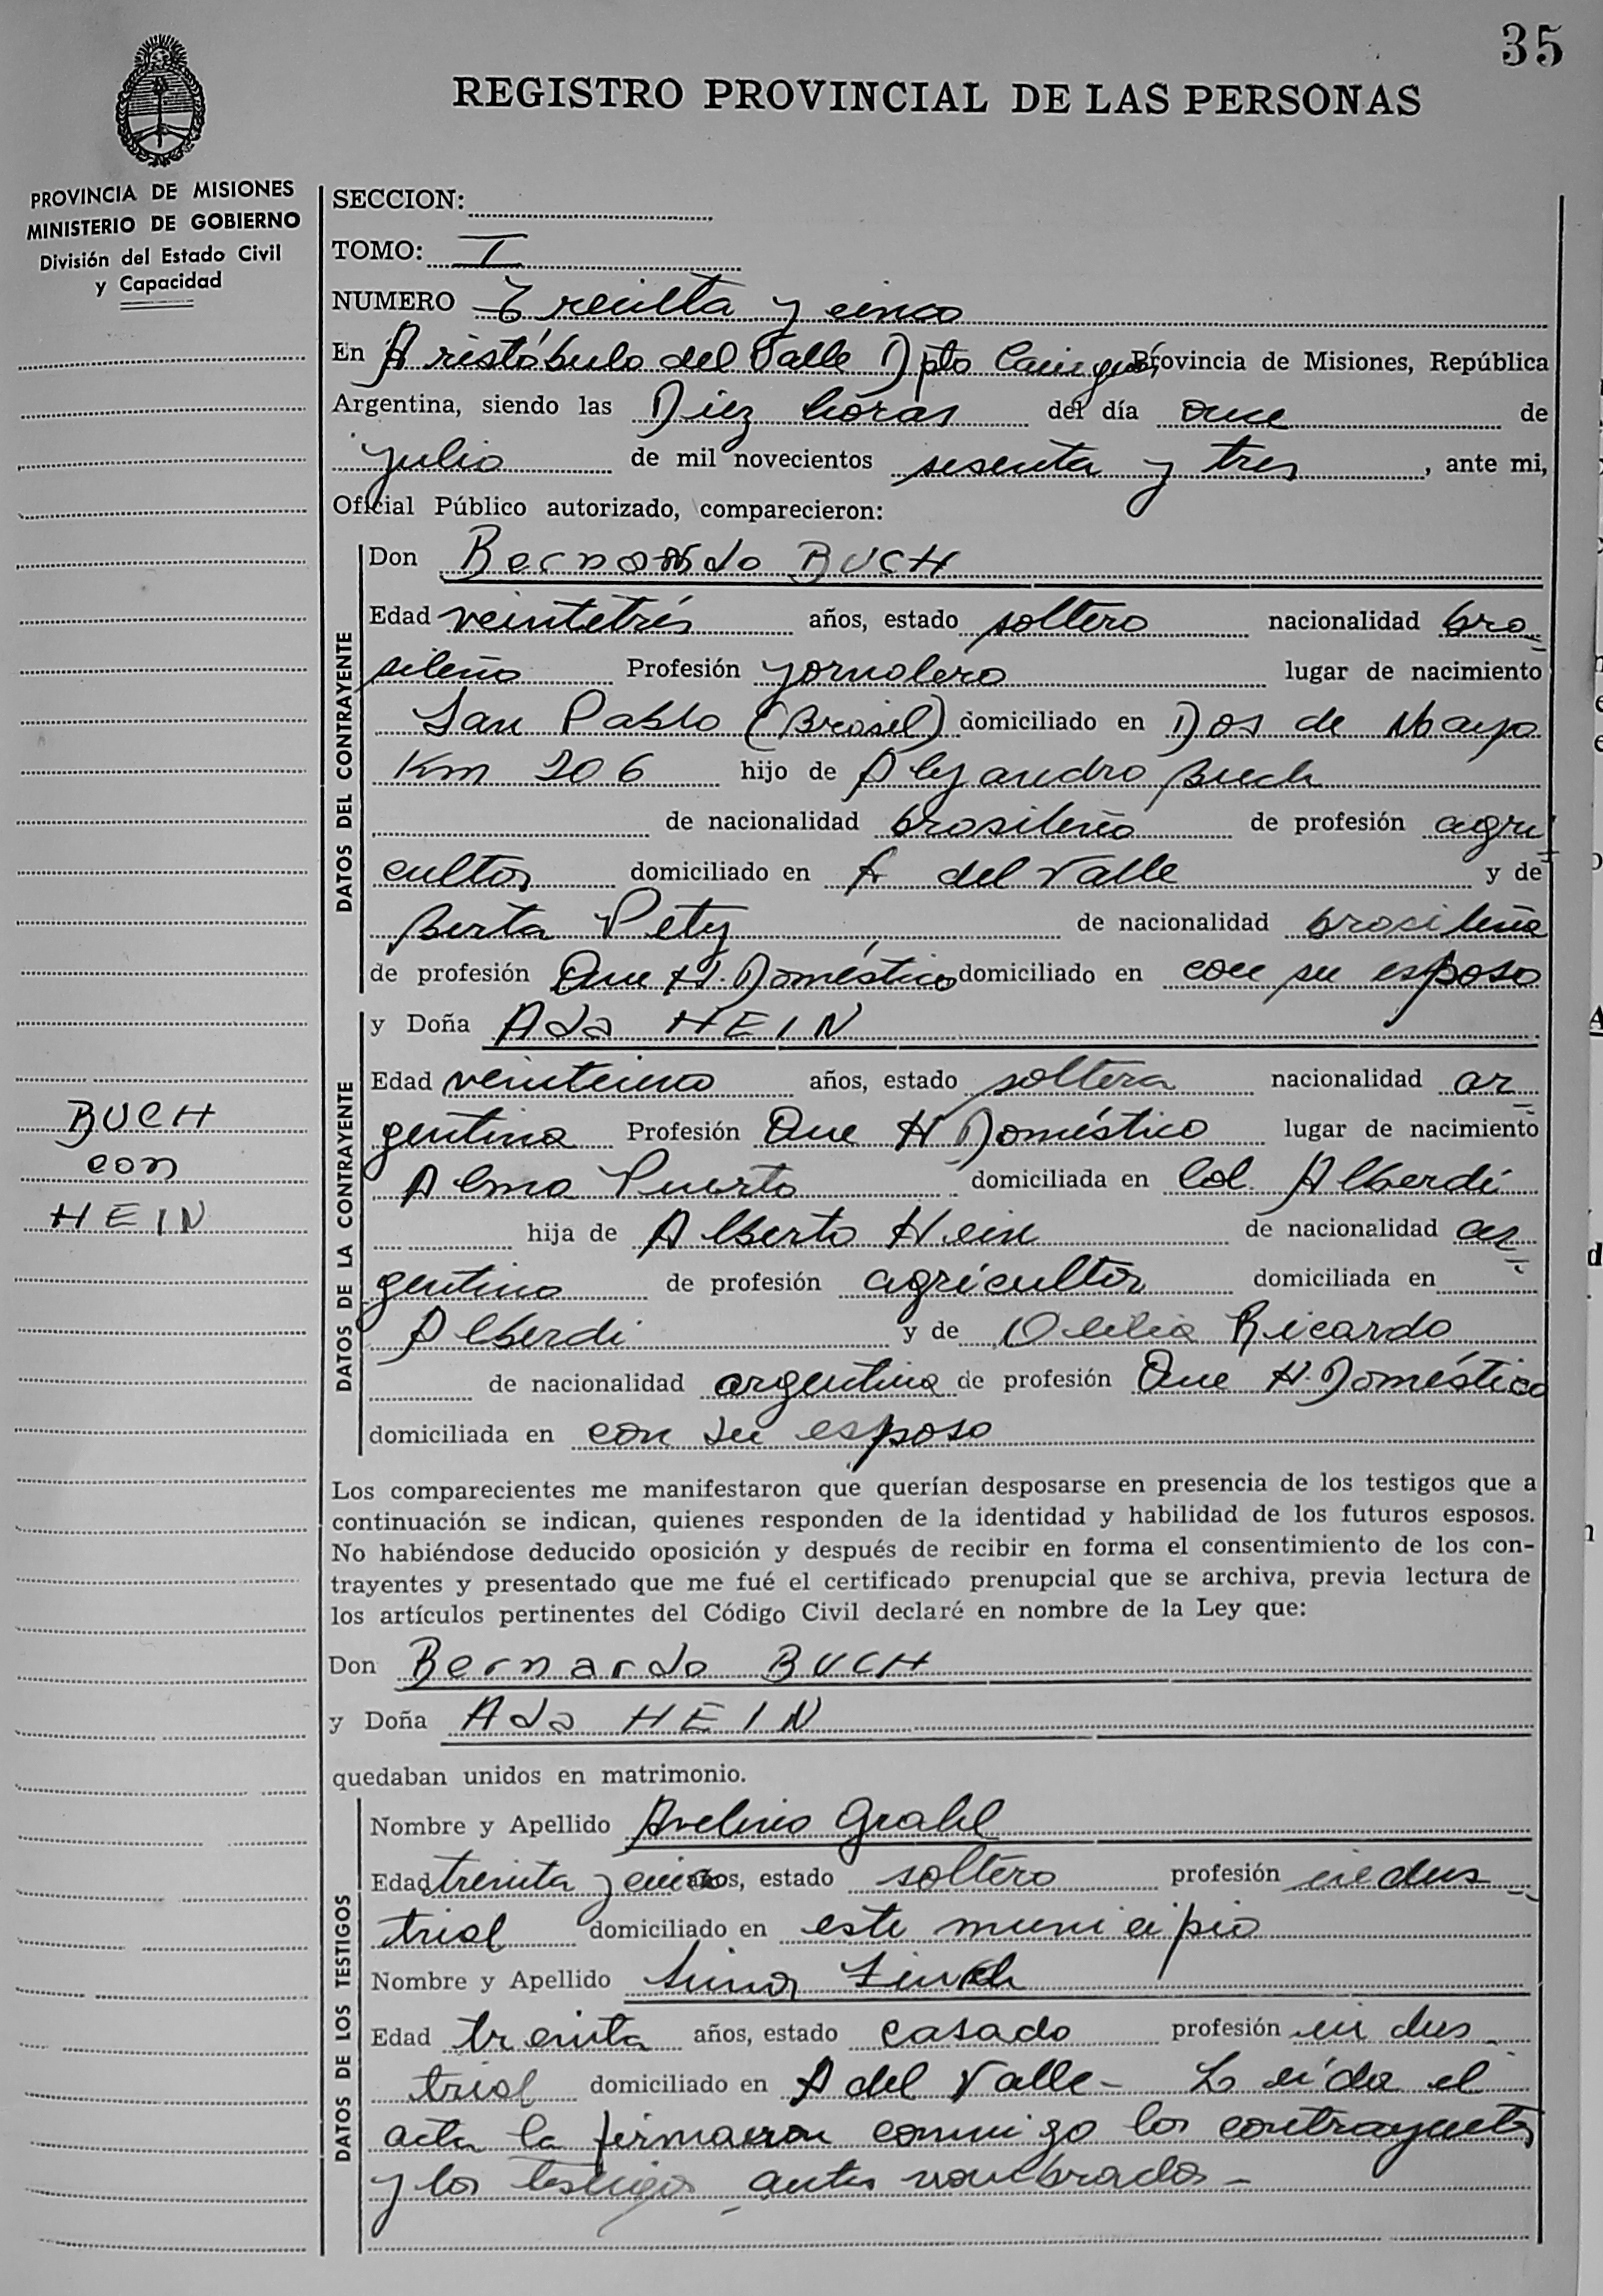 35
REGISTRO PROVINCIAL DE LAS PERSONAS
PROVINCIA DE MISIONES
MINISTERIO DE GOBIERNO
División del Estado Civil
y Capacidad
SECCION:
TOMO: I
NUMERO Treinta y cinco
En Aristóbulo del Valle Dpto Cainguás, Provincia de Misiones, República
Argentina, siendo las Diez horas del día once de
julio de mil novecientos sesenta y tres, ante mi,
Oficial Público autorizado, comparecieron:
DATOS DEL CONTRAYENTE
Don Bernardo BUCH
Edad veintetrés años, estado soltero nacionalidad bra-
sileño Profesión jornalero lugar de nacimiento
San Pablo (Brasil) domiciliado en Dos de Mayo
Km 206 hijo de Alejandro Buch
de nacionalidad brasileño de profesión agri
cultor domiciliado en A del Valle y de
Berta Pety de nacionalidad brasileña
de profesión Que H. Doméstico domiciliado en con su esposo
DATOS DE LA CONTRAYENTE
y Doña Ada HEIN
Edad veinteuno años, estado soltera nacionalidad ar
gentina Profesión Que H Doméstico lugar de nacimiento
Alma Puerto domiciliada en Col. Alberdi
hija de Alberto Hein de nacionalidad ar
gentino de profesión agricultor domiciliada en
Alberdi y de Ricardo
de nacionalidad argentina de profesión Que H. Doméstico
domiciliada en con su esposo
BUCH
con
HEIN
Los comparecientes me manifestaron que querían desposarse en presencia de los testigos que a
continuación se indican, quienes responden de la identidad y habilidad de los futuros esposos.
No habiéndose deducido oposición y después de recibir en forma el consentimiento de los con-
trayentes y presentado que me fué el certificado prenupcial que se archiva, previa lectura de
los artículos pertinentes del Código Civil declaré en nombre de la Ley que:
Don Bernardo BUCH
y Doña Ada HEIN
quedaban unidos en matrimonio.
DATOS DE LOS TESTIGOS
Nombre y Apellido Avelino Grahl
Edad treinta y cinco años, estado soltero profesión indus
trial domiciliado en este municipio
Nombre y Apellido
Edad treinta años, estado casado profesión indus
trial domiciliado en A del Valle - Leída el
acta la firmaron conmigo los contrayentes
y los testigos antes nombrados -